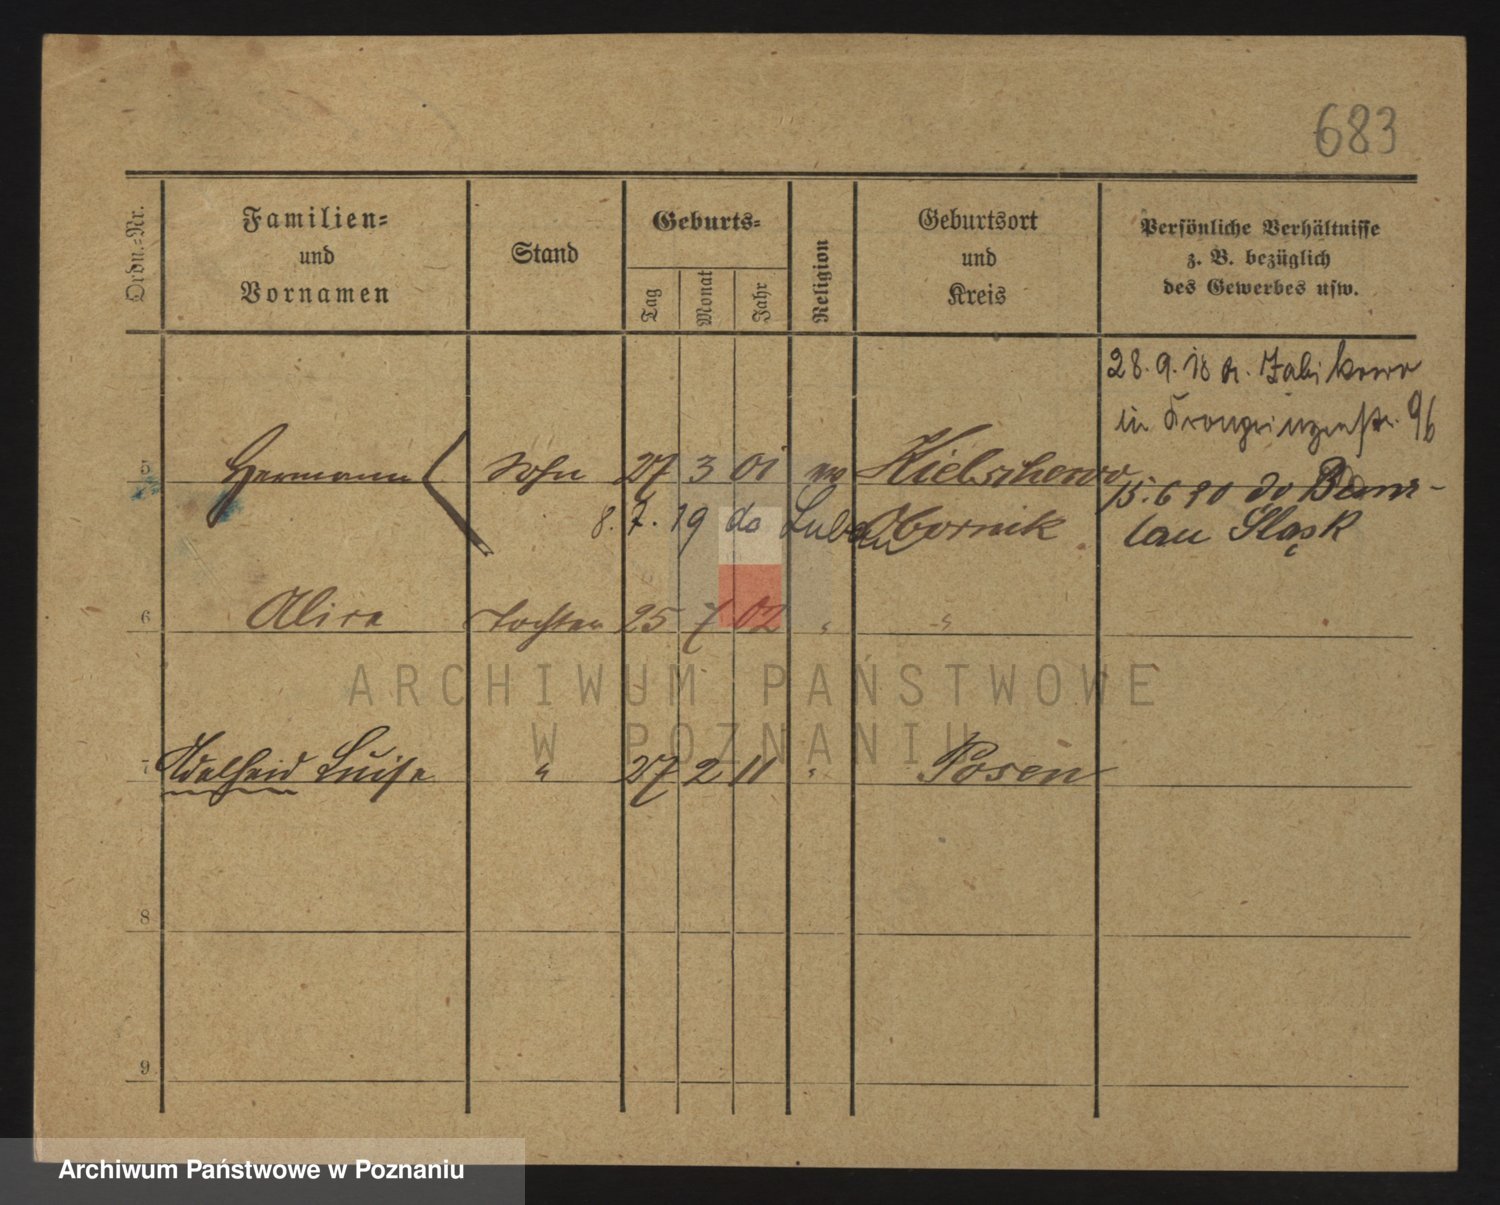 683
Ordn.-Nr.
Familien-
und
Vornamen
Stand
Geburts-
Tag
Monat
Jahr
Religion
Geburtsort
und
Kreis
Persönliche Verhältnisse
z. B. bezüglich
des Gewerbes usw.
28. 9. 18 a. Zabikowo
in Kronprinzenstr. 96
5 Hermann Sohn 27 3 01 Kielschewo
8. 7. 19 do Luban Obornik
15. 6 20 do Bunz-
lau Śląsk
6 Alice Tochter 25 7 02 " "
7 Adelheid Luise " 27 2 11 " Posen
8
9
ARCHIWUM PAŃSTWOWE
W POZNANIU
Archiwum Państwowe w Poznaniu